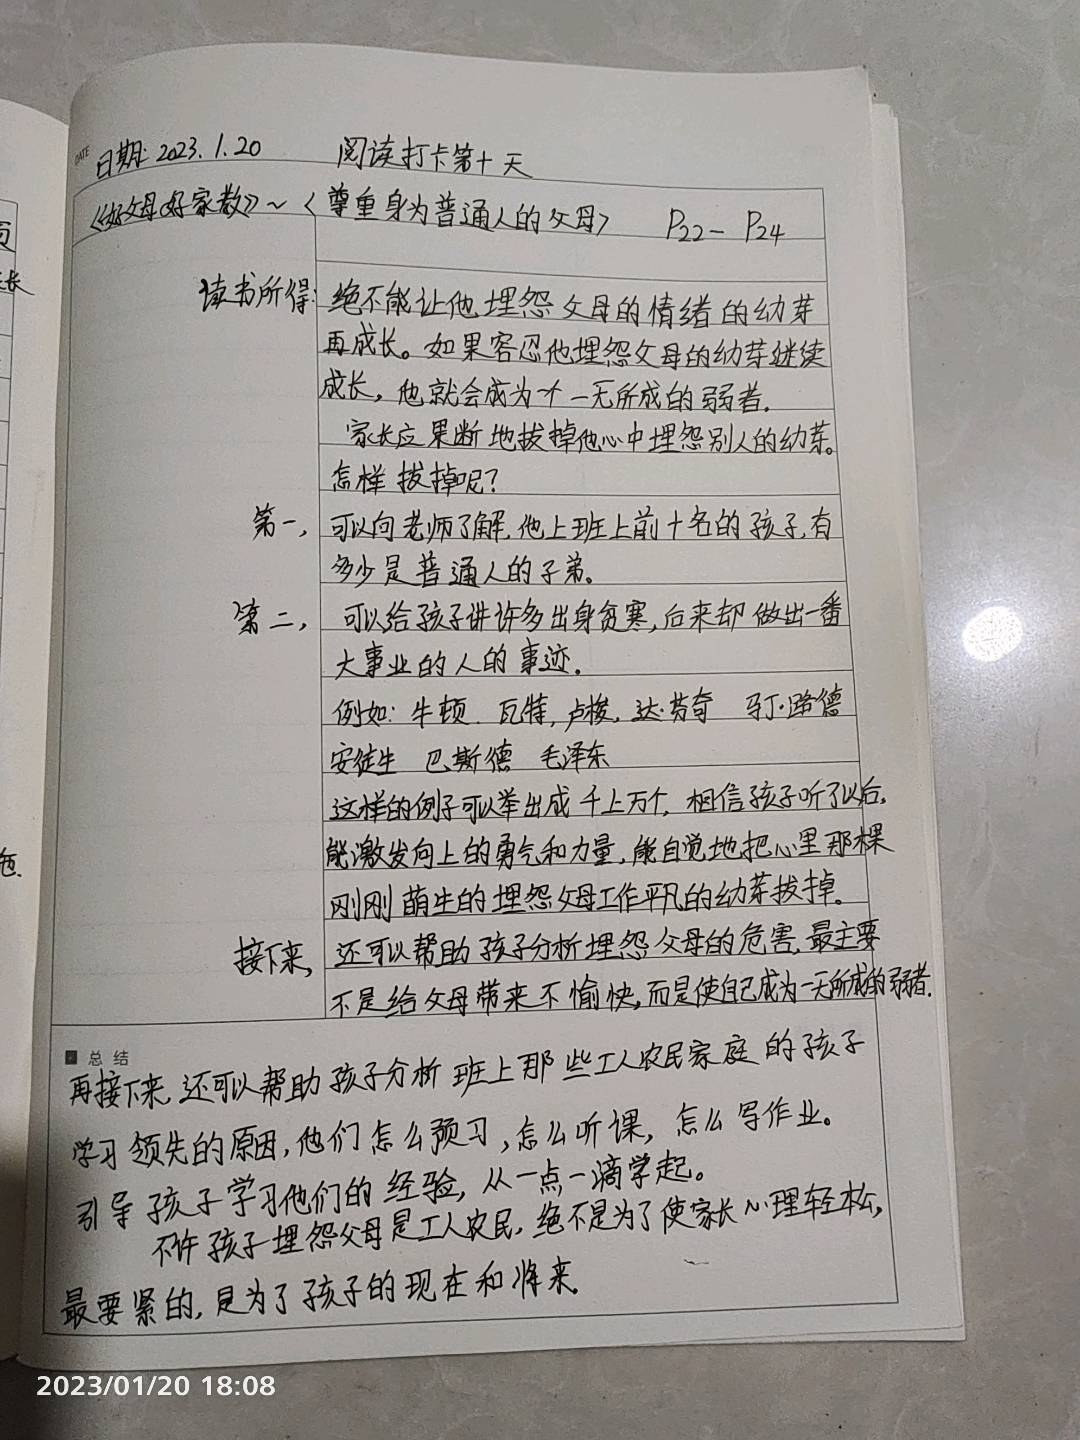 DATE 日期: 2023.1.20 阅读打卡第十天
《好父母好家教》~〈尊重身为普通人的父母〉 P22- P24
读书所得: 绝不能让他埋怨父母的情绪的幼芽
再成长。如果容忍他埋怨父母的幼芽继续
成长,他就会成为个一无所成的弱者.
家长应果断地拔掉他心中埋怨别人的幼芽。
怎样拔掉呢?
第一, 可以向老师了解,他上班上前十名的孩子,有
多少是普通人的子弟。
第二, 可以给孩子讲许多出身贫寒,后来却做出一番
大事业的人的事迹.
例如: 牛顿. 瓦特, 卢梭, 达·芬奇 马丁·路德
安徒生 巴斯德 毛泽东
这样的例子可以举出成千上万个, 相信孩子听了以后,
能激发向上的勇气和力量,能自觉地把心里那棵
刚刚萌生的埋怨父母工作平凡的幼芽拔掉.
接下来, 还可以帮助孩子分析埋怨父母的危害,最主要
不是给父母带来不愉快,而是使自己成为一无所成的弱者.
总结
再接下来,还可以帮助孩子分析班上那些工人农民家庭的孩子
学习领先的原因,他们怎么预习,怎么听课,怎么写作业。
引导孩子学习他们的经验,从一点一滴学起。
不许孩子埋怨父母是工人农民,绝不是为了使家长心理轻松,
最要紧的,是为了孩子的现在和将来.
页
长
2023/01/20 18:08